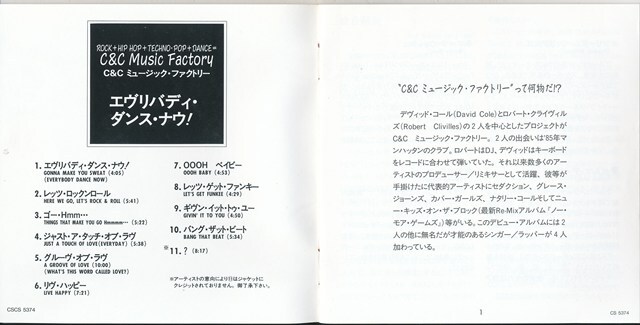 ROCK+HIP HOP+TECHNO-POP+DANCE=
C&C Music Factory
C&C ミュージック・ファクトリー
エヴリバディ・
ダンス・ナウ!
1. エヴリバディ・ダンス・ナウ!
GONNA MAKE YOU SWEAT (4:05)
(EVERYBODY DANCE NOW)
2. レッツ・ロックンロール
HERE WE GO, LET'S ROCK & ROLL (5:41)
3. ゴー・Hmm…
THINGS THAT MAKE YOU GO Hmmmm… (5:22)
4. ジャスト・ア・タッチ・オブ・ラヴ
JUST A TOUCH OF LOVE(EVERYDAY) (5:38)
5. グルーヴ・オブ・ラヴ
A GROOVE OF LOVE (10:00)
(WHAT'S THIS WORD CALLED LOVE?)
6. リヴ・ハッピー
LIVE HAPPY (7:21)
7. OOOH ベイビー
OOOH BABY (4:53)
8. レッツ・ゲット・ファンキー
LET'S GET FUNKEE (4:29)
9. ギヴン・イット・トゥ・ユー
GIVIN' IT TO YOU (4:50)
10. バング・ザット・ビート
BANG THAT BEAT (5:34)
※11. ? (8:17)
※アーティストの意向により11はジャケットに
クレジットされておりません。御了承下さい。
CSCS 5374
"C&C ミュージック・ファクトリー"って何物だ!?
デヴィッド・コール(David Cole)とロバート・クライヴィル
ズ(Robert Clivilles)の2人を中心としたプロジェクトが
C&C ミュージック・ファクトリー。2人の出会いは'85年マ
ンハッタンのクラブ。ロバートはDJ、デヴィッドはキーボード
をレコードに合わせて弾いていた。それ以来数多くのアー
ティストのプロデューサー/リミキサーとして活躍、彼等が
手掛けたに代表的アーティストにセダクション、グレース・
ジョーンズ、カバー・ガールズ、ナタリー・コールそしてニュ
ー・キッズ・オン・ザ・ブロック(最新Re-Mixアルバム「ノー・
モア・ゲームズ」)等がいる。このデビュー・アルバムには2
人の他に無名だが才能のあるシンガー/ラッパーが4人
加わっている。
1
CS 5374